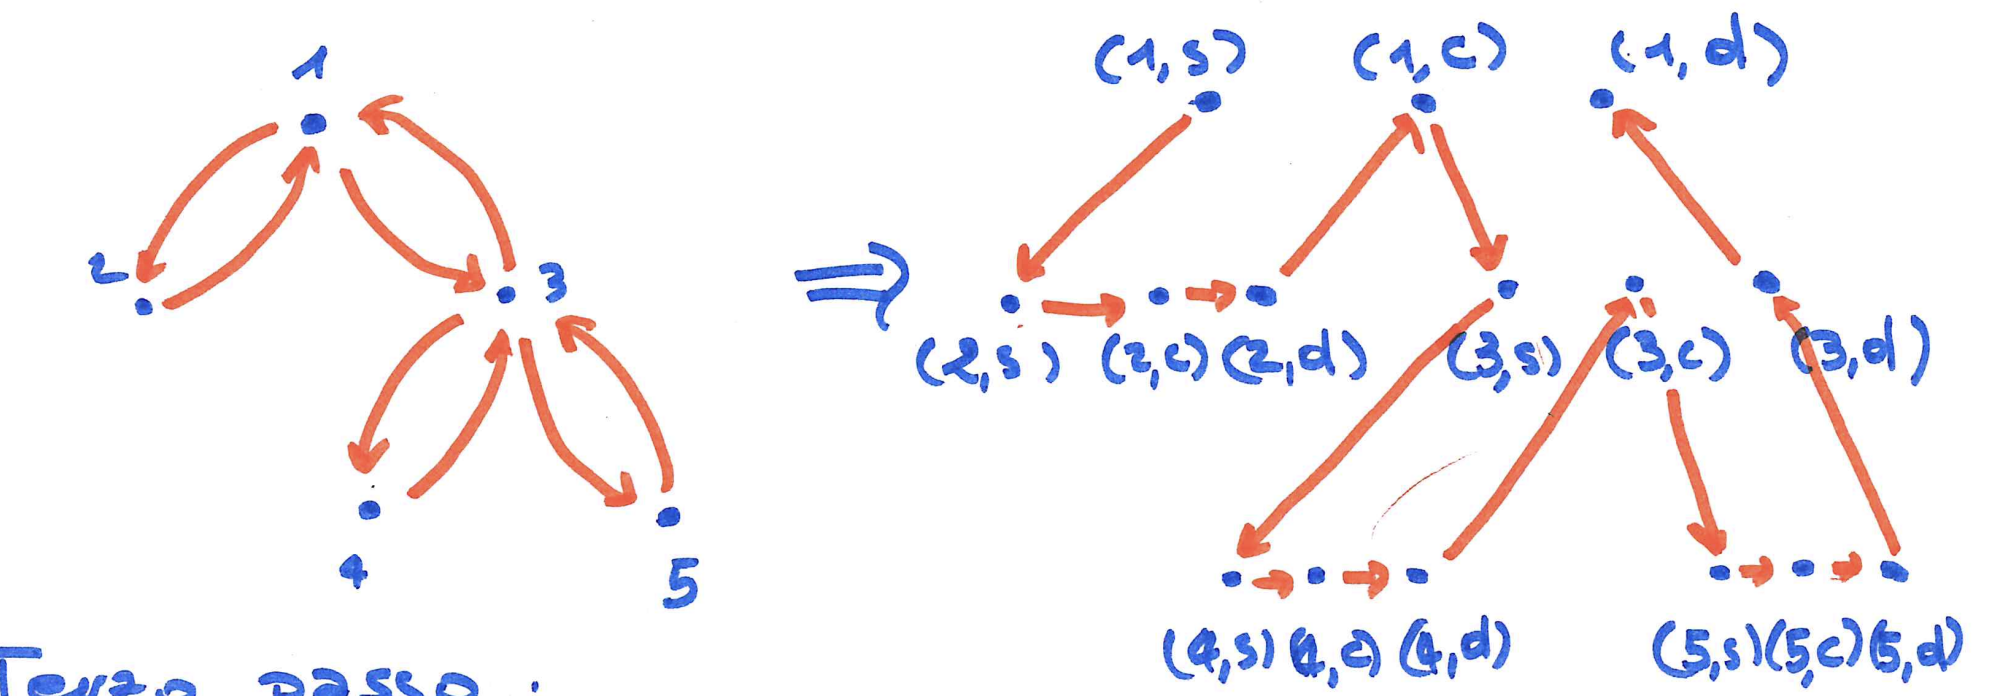 1 (1,s) (1,c) (1,d)
2 3 ⇒
(2,s) (2,c) (2,d) (3,s) (3,c) (3,d)
4 5
(4,s) (4,c) (4,d) (5,s) (5,c) (5,d)
Terzo passo :